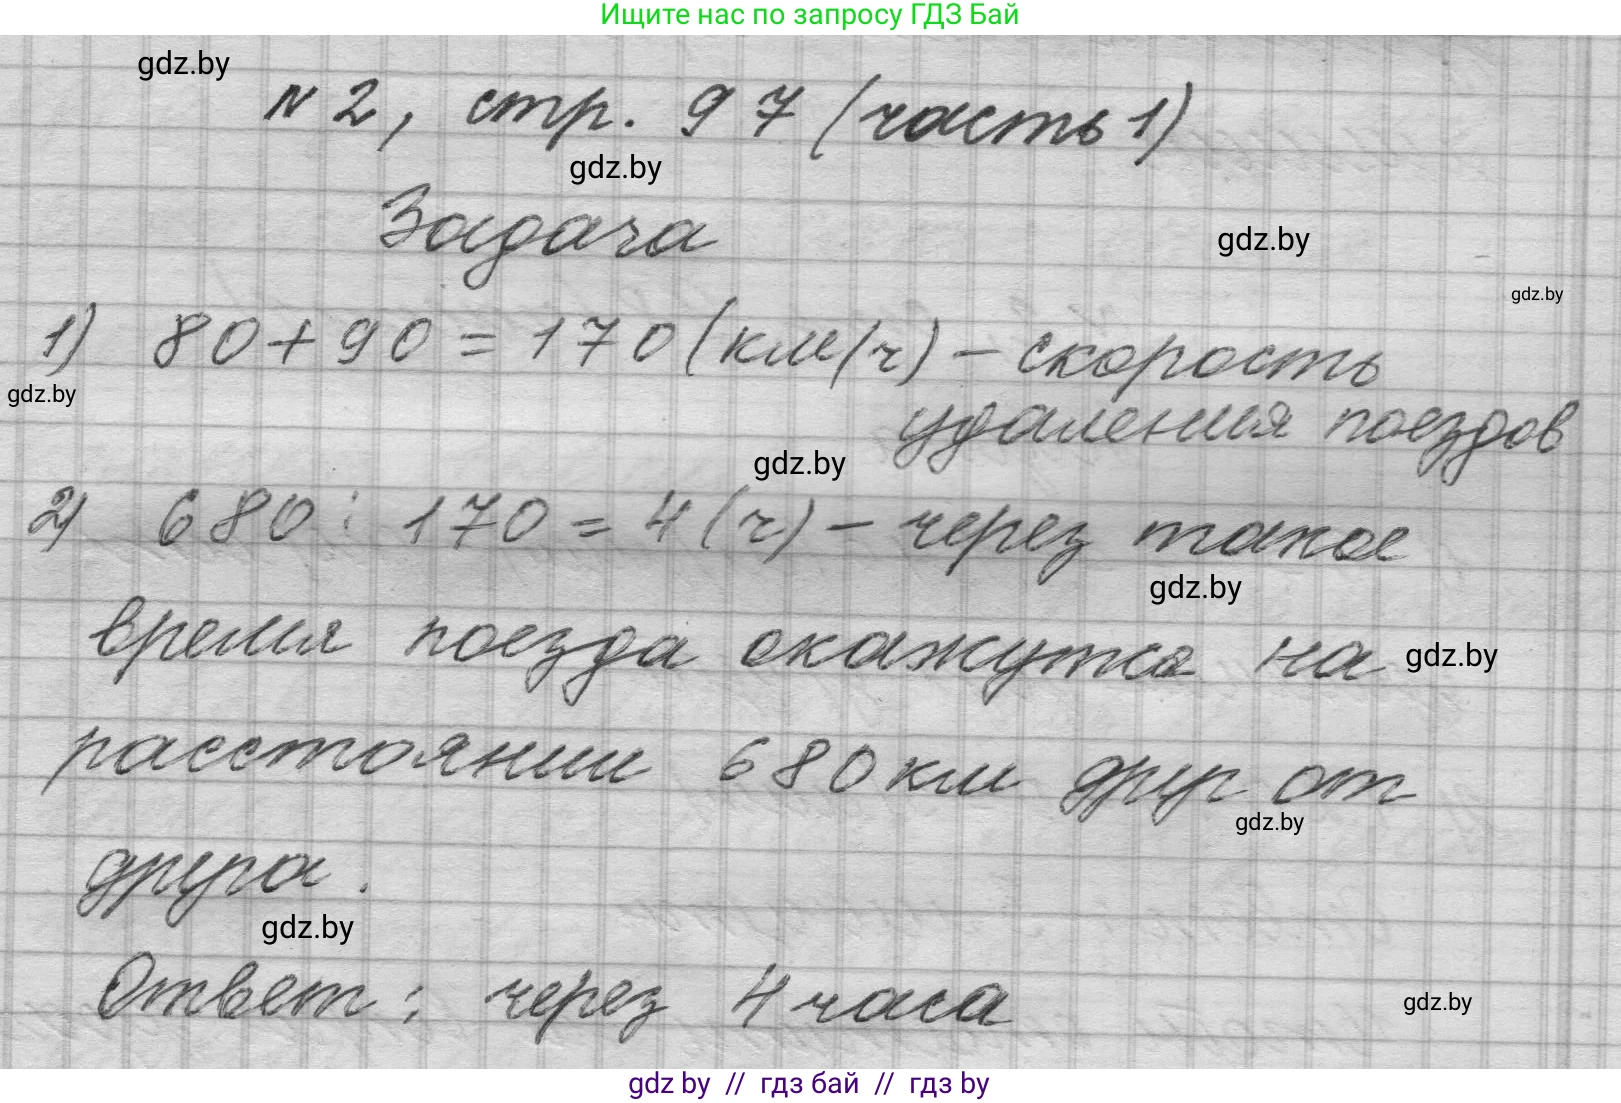 Ищите нас по запросу ГДЗ Бай
gdz.by
№ 2, стр. 97 (часть 1)
gdz.by
Задача
gdz.by
gdz.by
1) 80 + 90 = 170 (км/ч) – скорость
gdz.by
удаления поездов
gdz.by
2) 680 : 170 = 4 (ч) – через такое
gdz.by
время поезда окажутся на
gdz.by
расстоянии 680 км друг от
gdz.by
друга.
gdz.by
Ответ: через 4 часа
gdz.by
gdz by // гдз бай // гдз by